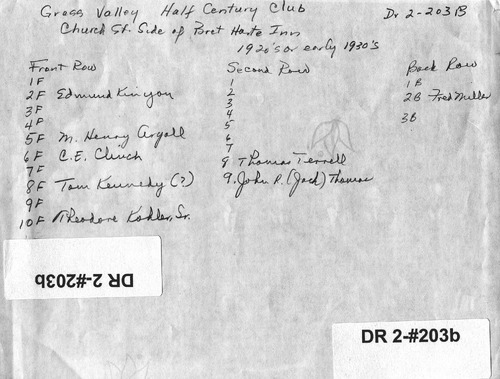 Grass Valley Half Century Club
Dr 2-203B
Church St. Side of Bret Harte Inn
1920's or early 1930's
Front Row
1F
2F Edmund Kinyon
3F
4F
5F M. Henry Argall
6F C.E. Clinch
7F
8F Tom Kennedy (?)
9F
10F Theodore Kohler, Sr.
Second Row
1
2
3
4
5
6
7
8 Thomas Terrell
9. John R. (Jack) Thomas
Back Row
1B
2B Fred Miller
3B
DR 2-#203b
DR 2-#203b